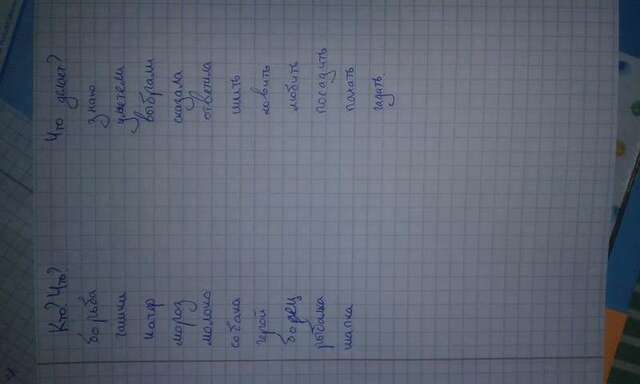 Кто? Что? Что делает?
борьба знаю
гашки улетели
катер выбрали
мороз сказала
молоко ответила
собака шить
герой ловить
борец любить
рыбалка посадить
шапка пахать
гадать